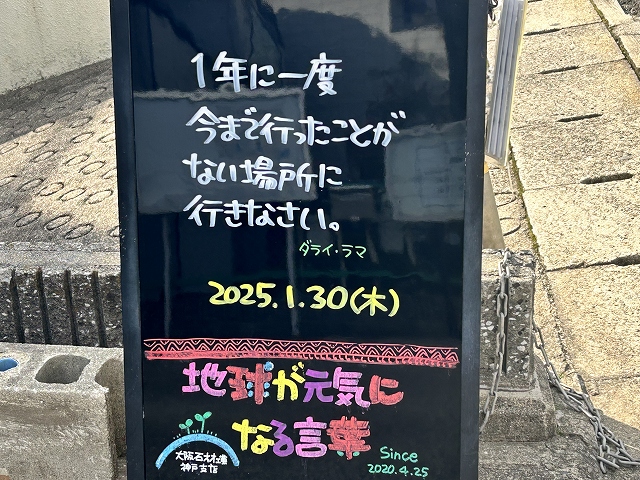 1年に一度
今まで行ったことが
ない場所に
行きなさい。
ダライ・ラマ
2025.1.30(木)
地球が元気に
なる言葉
大阪石材工業
神戸支店
Since
2020.4.25